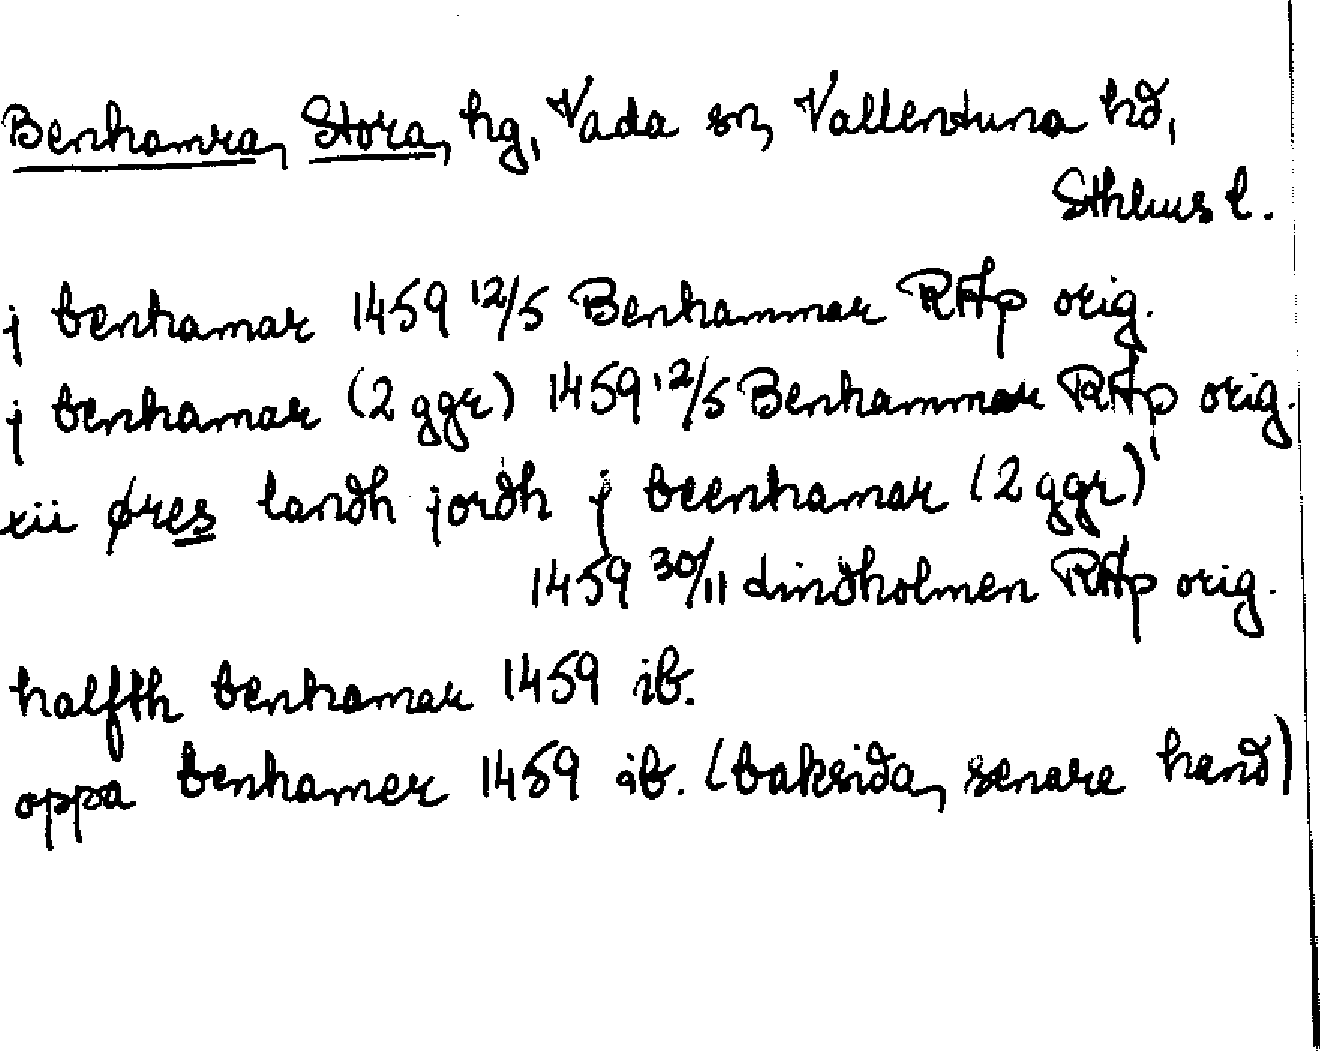 Benhamra, Stora, hg, Vada sn, Vallentuna hd,
Sthlms l.
j benhamar 1459 12/5 Benhammar RAp orig.
j benhamar (2 ggr) 1459 12/5 Benhammar RAp orig.
xii øres landh jordh j beenhamar (2 ggr)
1459 30/11 Lindholmen RAp orig.
halfth benhamar 1459 ib.
oppa benhamer 1459 ib. (baksida, senare hand)